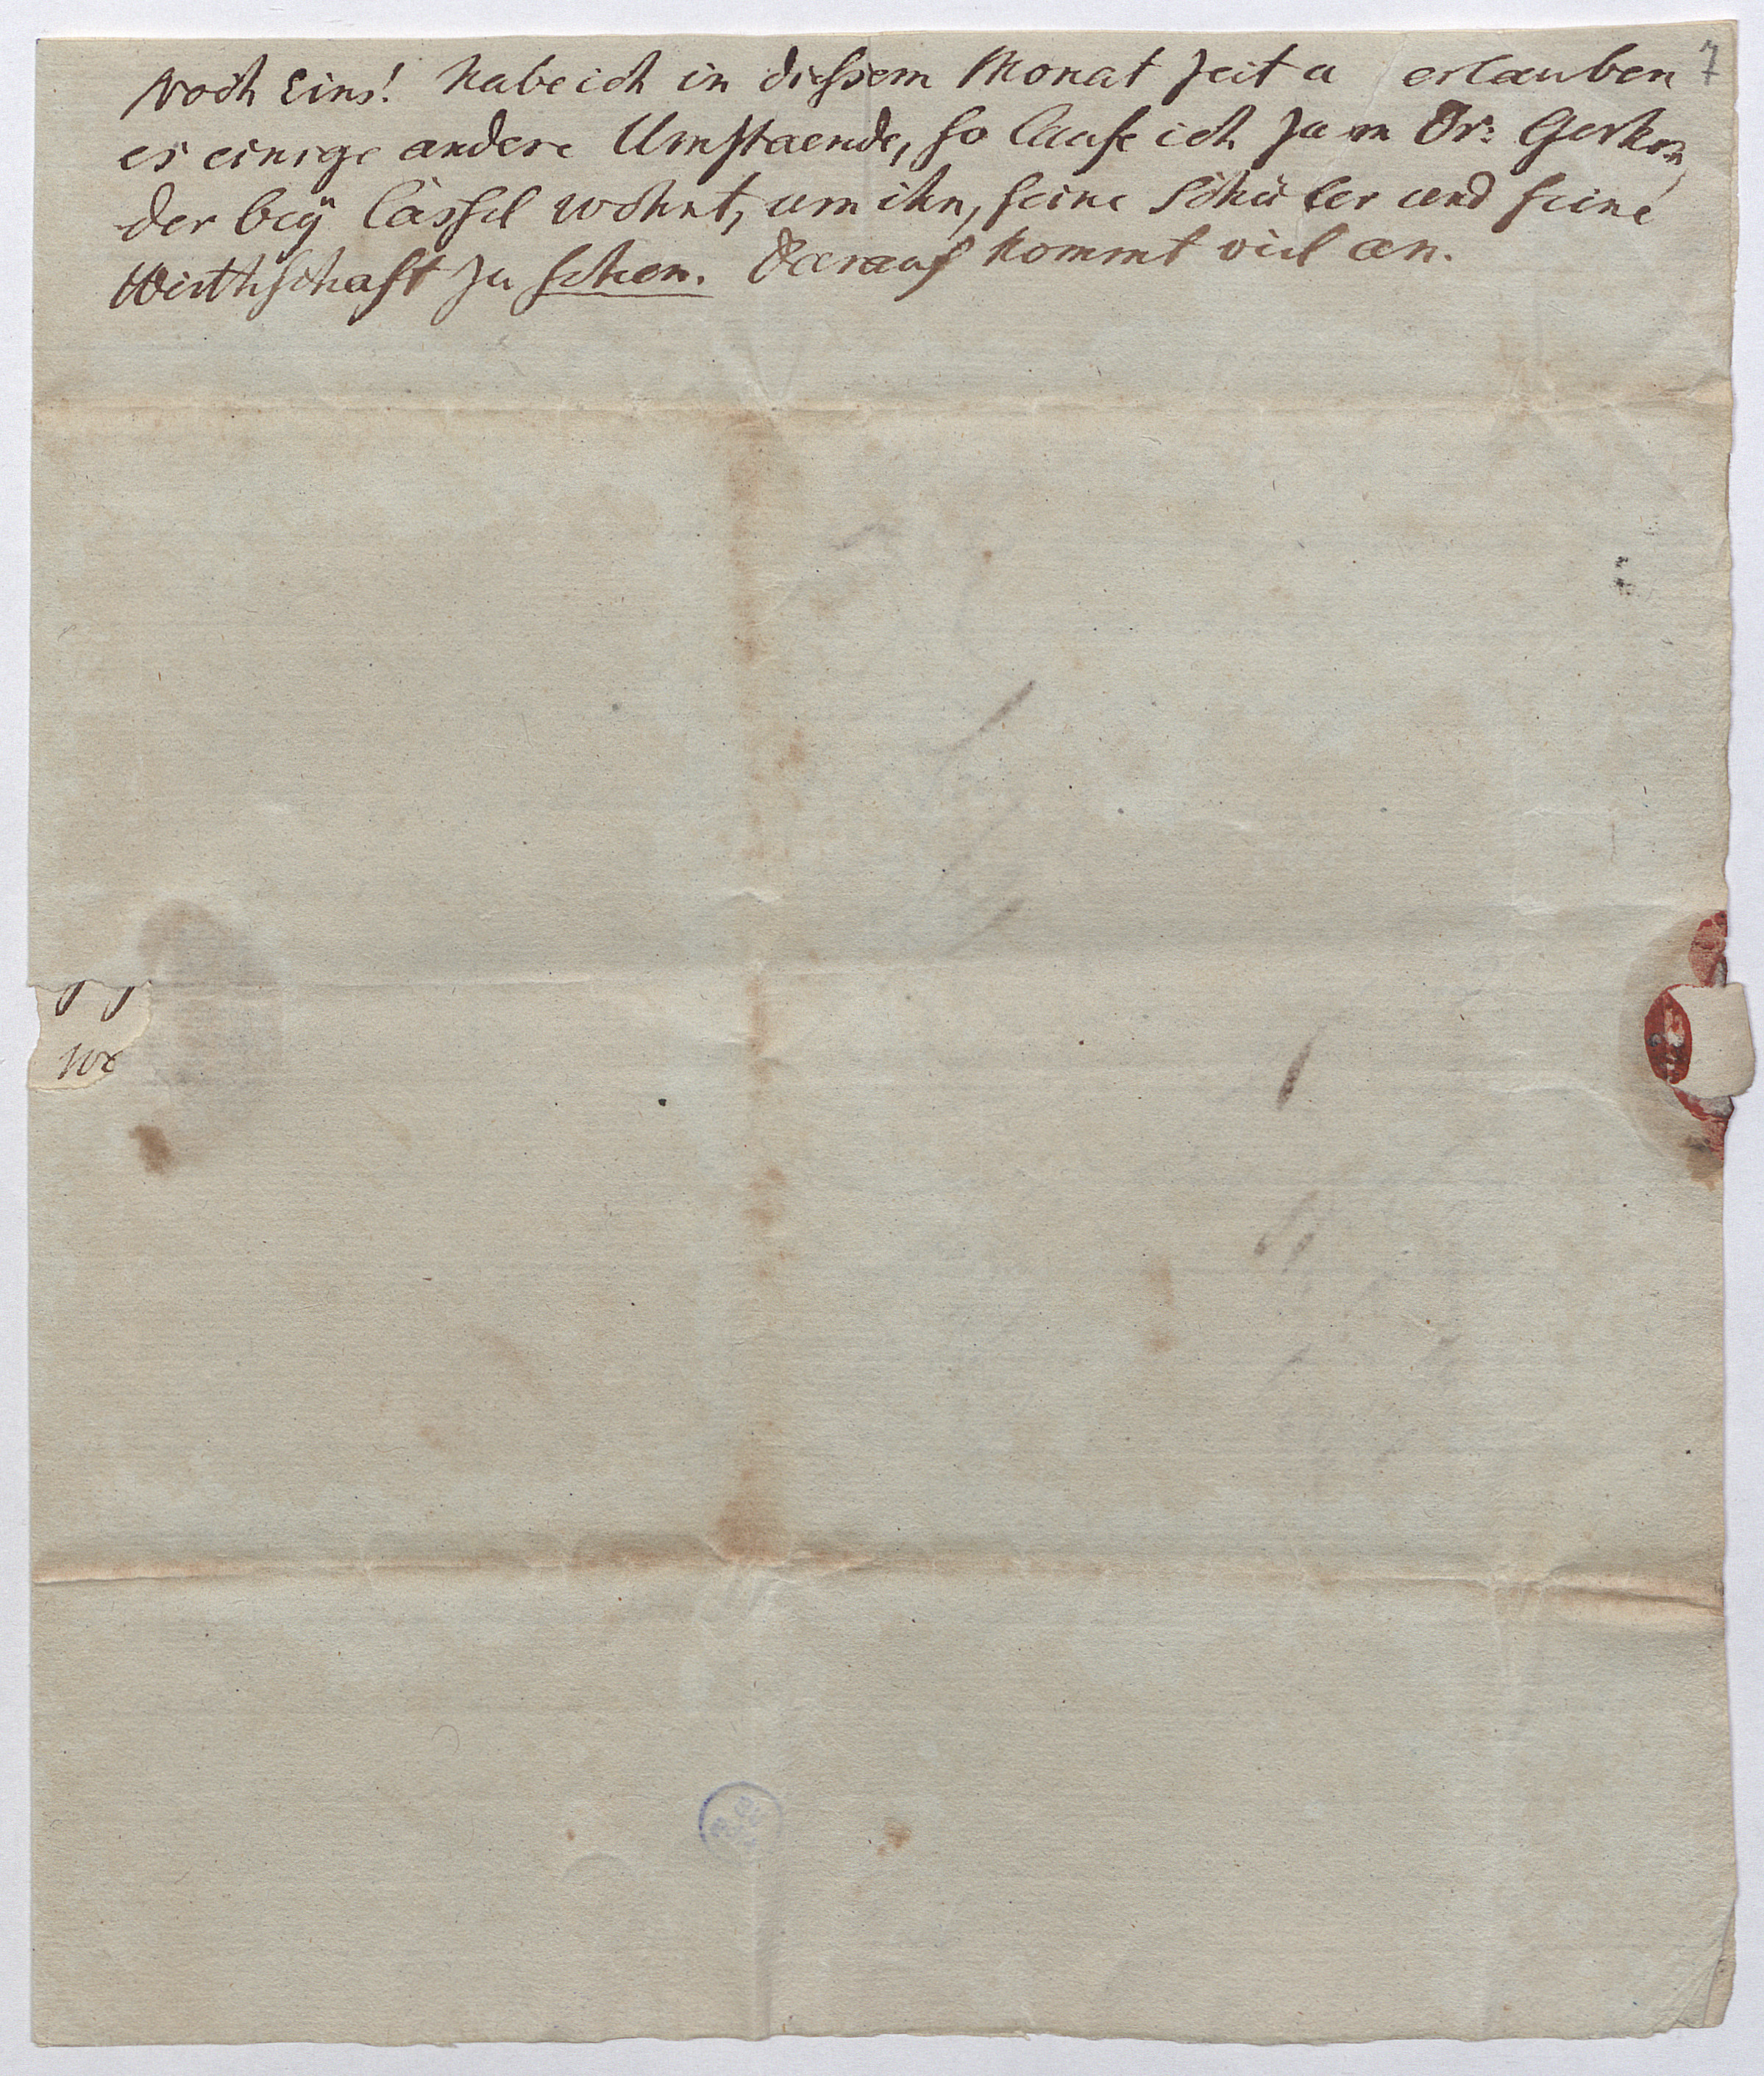 7
Noch Eins! Habe ich in diessem Monat Zeit u erlauben
es einige andere Umstaende, so laufe ich zum Dr:
der bey Cassel wohnt, um ihn, seine Schüler und seine
Wirthschaft zu sehen. Darauf kommt viel an.